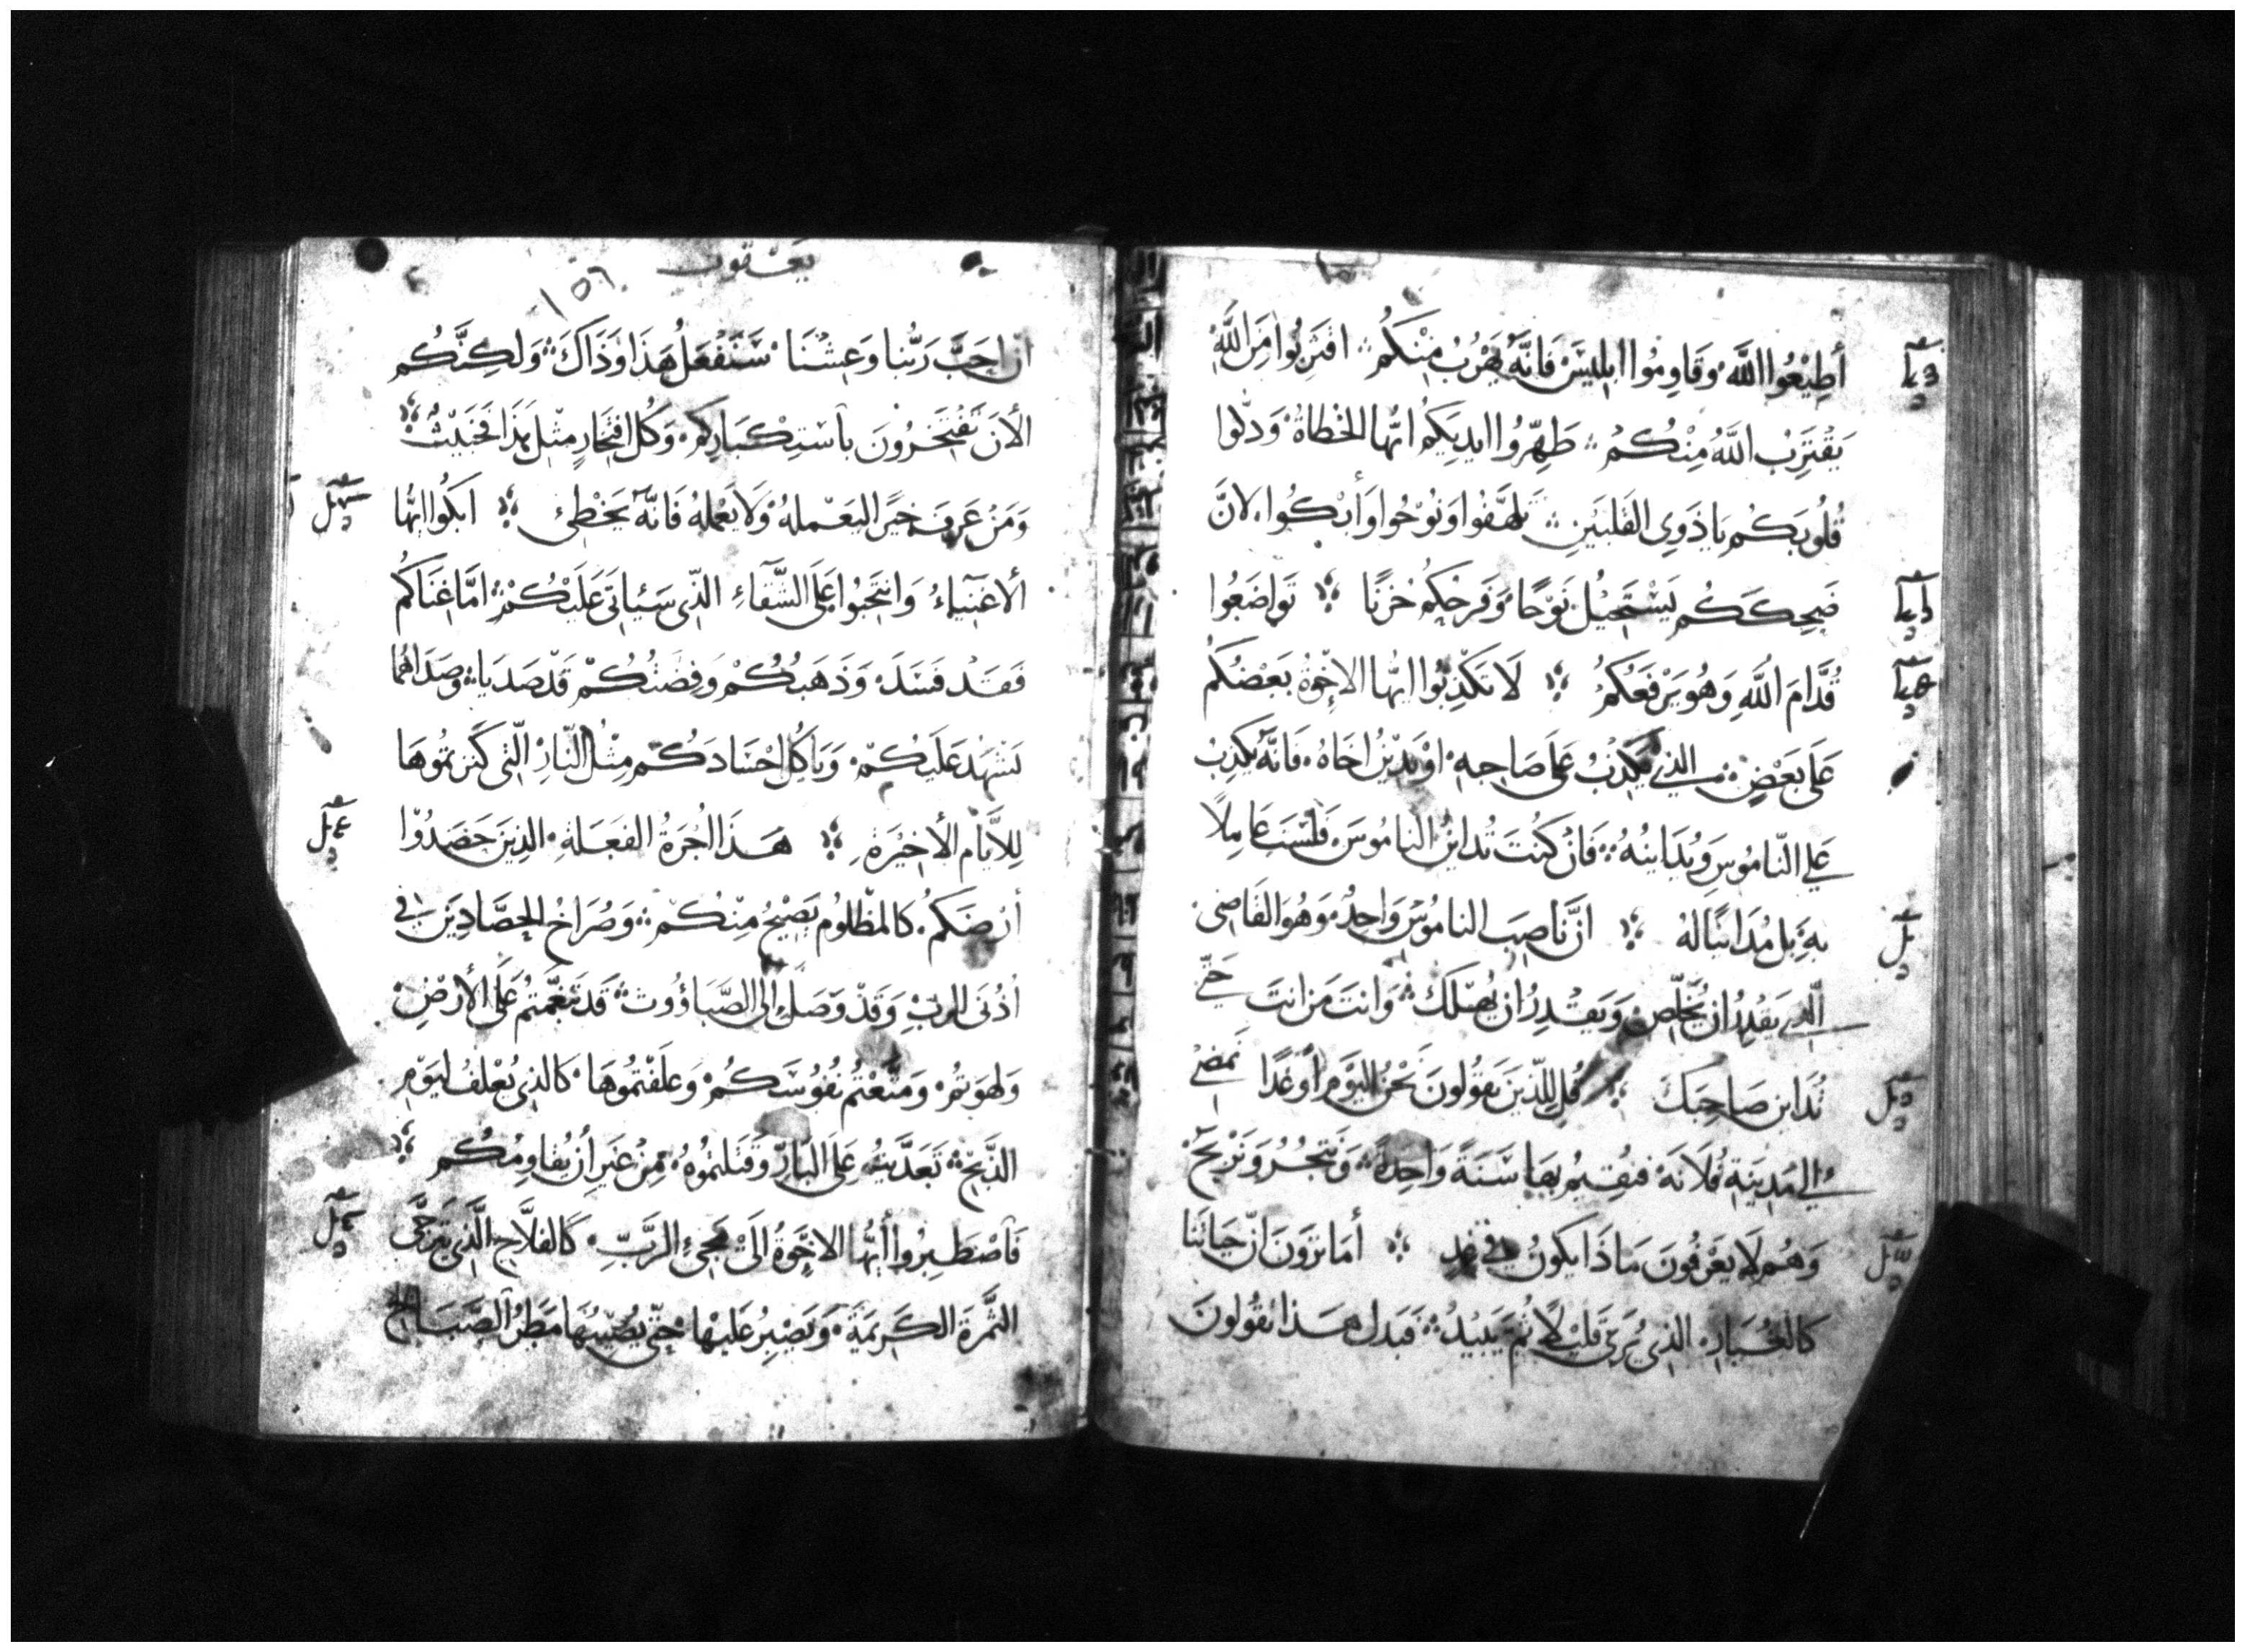 أَطِيْعُوا اللَّهَ وَقَاوِمُوا ابليسَ فَانَّهُ يَهْرُبُ مِنْكُم ❖ اقتَرِبُوا مِنَ اللَّهِ
يَقتَرِبُ اللَّهُ مِنْكُمْ ❖ طَهِّرُوا ايديَكُم ايُّها الخُطاةُ وَدلّوا
قُلُوبَكُم يَا ذَوِي القَلبَينِ ❖ تلَهَّفُوا وَنُوْحُوا وَأَبْكُوا لانَّ
ضَحِكَكُم يَسْتَحِيْلُ نَوْحًا وَفَرحَكُم حُزنًا ❖ تَواضَعُوا
قُدَّامَ اللَّهِ وَهُو يَرْفَعُكُم ❖ لَا تكذِبُوا ايُّها الاخْوَةُ بَعْضُكُم
عَلَى بَعْضٍ الذي يَكْذِبُ عَلَى صَاحِبِهِ اوْ يَدِيْنُ اخَاهُ فَانَّهُ يَكذِبُ
عَلي النّامُوسِ وَيُدَاينُهُ ❖ فَانْ كُنْتَ تُداينُ النامُوسَ فَلَسْتَ عَامِلاً
بهِ بل مُدَاينًا لهُ ❖ انَّ نَاصِبَ النامُوسِ وَاحِدٌ وَهُوَ القَاضِي
الّذِي يَقْدِرُ ان يُخَلِّصَ وَيَقْدِرُ ان يُهْلَكَ ❖ وَانتَ مَن انتَ حَتّي
تُدَاين صَاحِبَكَ ❖ قُل لِلّذينَ يَقُولونَ نَحْنُ اليَوْمَ أَوْ غَدًا نَمضِي
الي مَدِينَةِ فُلَانَهْ فنُقِيمُ بهَا سَنَةً وَاحِدةً وَنَتجُرُ وَنَرْبَحْ
وَهُم لَا يَعْرِفُونَ مَاذَا يكونُ في غدٍ ❖ أمَا تَرَونَ انّ حَيَاتَنَا
كالبُخَارِ الذي يُرَى قَليْلاً ثُمَّ يَبِيْدُ ❖ فَبَدل هَذا تقُولونَ
يعقوب
١٥٦
ان احَبَّ رَبُّنا وَعِشْنَا سَنَفْعَلُ هَذَا وَذَاكَ ❖ وَلكِنَّكُم
الأنَ تَفْتَخِرُونَ باسْتِكْبَارِكُم وَكُل افتخَارٍ مثْلِ هَذَا فَخَبيْثٌ ❖
وَمَنْ عَرفَ خيرًا ليَعْملهُ وَلَا يَعْملهُ فَانَّهُ يَخْطِئ ❖ ابكُوا ايُّها
ألاغنِيَاءُ وَانتَحِبُوا عَلَى الشَّقَاءِ الذّي سَيَاتي عَلَيْكُمْ ❖ امَّا غنَاكُم
فَقَدْ فَسَدَ وَذَهَبُكُمْ وَفِضَتُكُمْ قَدْ صَدِيَا ❖ وَصَدَاهُما
يَشْهَدُ عَلَيكُمْ وَيَاكُل اجْسَادَكُم مِثْل النّارْ الّتي كَنَزتُمُوهَا
لِلأَيّامِ الأخِيْرَةِ ❖ هَذَا اجُرَةُ الفَعَلةِ الذِينَ حَصَدُوْا
أرْضَكُم كالمظْلوُمِ يَصِيْحُ مِنْكُمْ ❖ وَصُرَاخُ الحصَّادِيَن في
أذُنَى الرَبِّ وَقَدْ وَصَلَ الى الصَّبَاؤُوت ❖ قَد تنعَّمتُم عَلَى الأَرْضِ
وَلهَوتُمْ وَمَتَّعْتُم نُفُوُسَكُمْ وَعلَفْتُمُوهَا كَالذِي يُعْلفُ ليَوْمِ
الذَّبْحِ ❖ تَعَدَّيتُم عَلَى البَارِّ وَقَتَلتمُوهُ مِنْ غَيرِ أنْ يُقَاومكُم ❖
فَاصْطَبِرُوا أيُّها الاخْوَةُ الَى مَجئِ الرَّبِّ كَالفلاَّح الَّذي يَتَرَجَّى
الثَّمَرَةَ الكَرِيمَةَ وَيَصْبِرُ عَليْهَا حتّى يُصِيْبَهَا مَطرُ الصَّبَاحِ